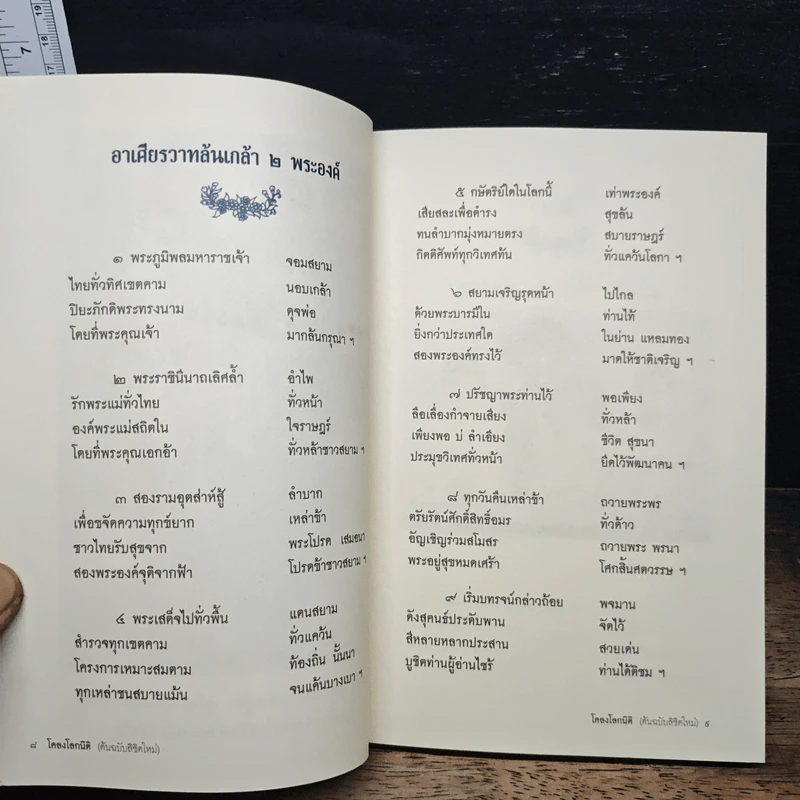 19
7
17
อาเศียรวาทล้นเกล้า ๒ พระองค์
๑ พระภูมิพลมหาราชเจ้า จอมสยาม
ไทยทั่วทิศเขตคาม นอบเกล้า
ปิยะภักดิพระทรงนาม ดุจพ่อ
โดยที่พระคุณเจ้า มากล้นกรุณา ฯ
๒ พระราชินีนาถเลิศล้ำ อำไพ
รักพระแม่ทั่วไทย ทั่วหน้า
องค์พระแม่สถิตใน ใจราษฎร์
โดยที่พระคุณเอกอ้า ทั่วหล้าชาวสยาม ฯ
๓ สองรามอุตส่าห์สู้ ลำบาก
เพื่อขจัดความทุกข์ยาก เหล่าข้า
ชาวไทยรับสุขจาก พระโปรด เสมอนา
สองพระองค์จุติจากฟ้า โปรดข้าชาวสยาม ฯ
๔ พระเสด็จไปทั่วพื้น แดนสยาม
สำรวจทุกเขตคาม ทั่วแคว้น
โครงการเหมาะสมตาม ท้องถิ่น นั้นนา
ทุกเหล่าชนสบายแม้น จนแค้นบางเบา ฯ
๘ โคลงโลกนิติ (ต้นฉบับลิขิตใหม่)
๕ กษัตริย์ใดในโลกนี้ เท่าพระองค์
เสียสละเพื่อดำรง สุขล้น
ทนลำบากมุ่งหมายตรง สบายราษฎร์
กิตติศัพท์ทุกวิเทศทัน ทั่วแคว้นโลกา ฯ
๖ สยามเจริญรุดหน้า ไปไกล
ด้วยพระบารมีใน ท่านไท้
ยิ่งกว่าประเทศใด ในย่าน แหลมทอง
สองพระองค์ทรงไว้ มาดให้ชาติเจริญ ฯ
๗ ปรัชญาพระท่านไว้ พอเพียง
ลือเลื่องกำจายเสียง ทั่วหล้า
เพียงพอ บ่ ลำเอียง ชีวิต สุขนา
ประมุขวิเทศทั่วหน้า ยึดไว้พัฒนาคน ฯ
๘ ทุกวันคืนเหล่าข้า ถวายพระพร
ตรัยรัตน์ศักดิ์สิทธิ์อมร ทั่วด้าว
อัญเชิญร่วมสโมสร ถวายพระ พรนา
พระอยู่สุขหมดเศร้า โศกสิ้นศตวรรษ ฯ
๙ เริ่มบทรจน์กล่าวถ้อย พจมาน
ดังสุคนธ์ประดับพาน จัดไว้
สีหลายหลากประสาน สวยเด่น
บูชิตท่านผู้อ่านไซร้ ท่านได้ติชม ฯ
โคลงโลกนิติ (ต้นฉบับลิขิตใหม่) ๙